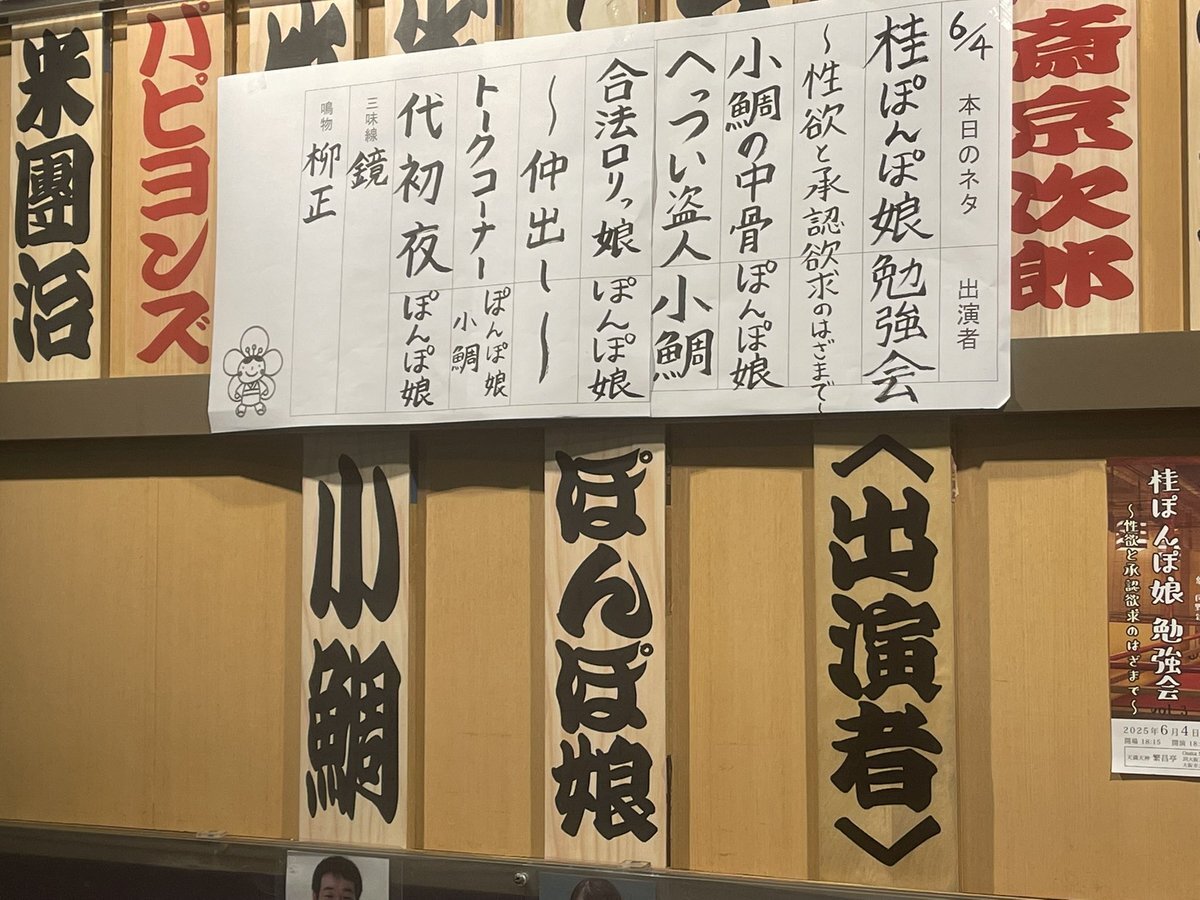 6/4
本日のネタ 出演者
桂ぽんぽ娘 勉強会
～性欲と承認欲求のはざまで～
小鯛の中骨 ぽんぽ娘
へっつい盗人 小鯛
合法ロリっ娘 ぽんぽ娘
～仲出し～
トークコーナー ぽんぽ娘 小鯛
代初夜 ぽんぽ娘
三味線 鏡
鳴物 柳正
斎京次郎
パピヨンズ
米團治
〈出演者〉
ぽんぽ娘
小鯛
桂ぽんぽ娘 勉強会
～性欲と承認欲求のはざまで～
vol.3
2025年6月4日
開場 18:15 開演 18:
天満天神 繁昌亭